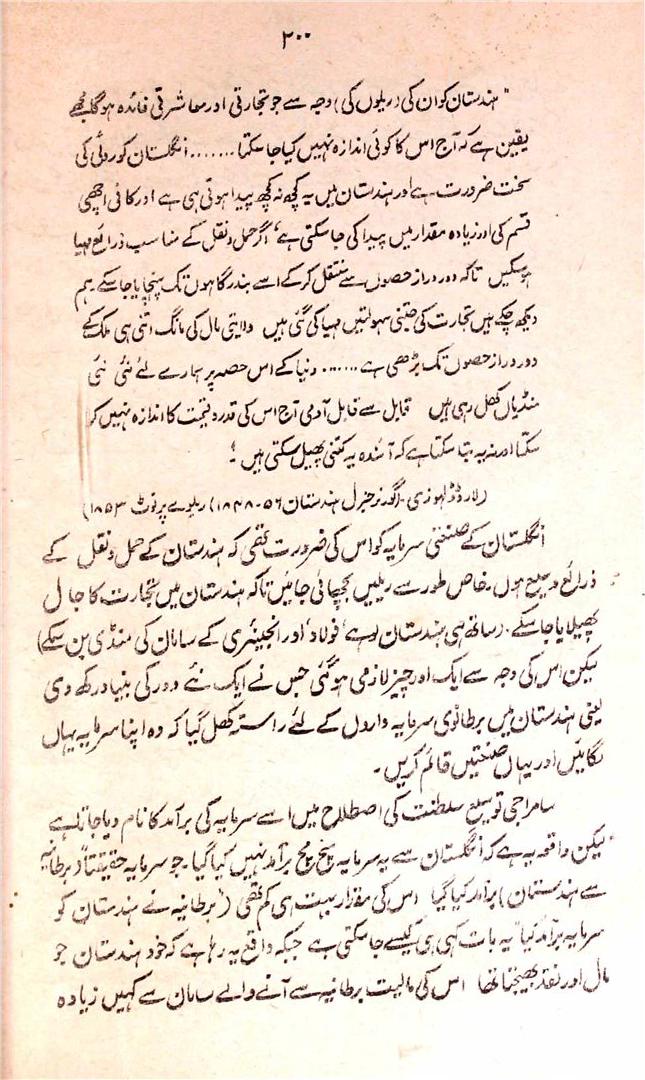 ۲۰۰
"ہندستان کو ان کی (ریلوں کی) وجہ سے جو تجارتی اور معاشرتی فائدہ ہوگا مجھے
یقین ہے کہ آج اس کا کوئی اندازہ نہیں کیا جا سکتا ....... انگلستان کو روئی کی
سخت ضرورت ہے اور ہندستان میں یہ کچھ نہ کچھ پیدا ہوتی ہی ہے اور کافی اچھی
قسم کی اور زیادہ مقدار میں پیدا کی جا سکتی ہے، اگر حمل و نقل کے مناسب ذرائع مہیا
ہو سکیں تاکہ دور دراز حصوں سے منتقل کر کے اسے بندرگاہوں تک پہنچایا جا سکے ہم
دیکھ چکے ہیں تجارت کی جتنی سہولتیں مہیا کی گئی ہیں ولایتی مال کی مانگ اتنی ہی ملک کے
دور دراز حصوں تک بڑھی ہے ...... دنیا کے اس حصہ پر ہمارے لئے نئی نئی
منڈیاں کھل رہی ہیں قابل سے قابل آدمی آج اس کی قدر و قیمت کا اندازہ نہیں کر
سکتا اور نہ یہ بتا سکتا ہے کہ آئندہ یہ کتنی پھیل سکتی ہیں۔"
(لارڈ ڈلہوزی۔ (گورنر جنرل ہندستان ۵۶-۱۸۴۸) ریلوے پر نوٹ ۱۸۵۳)
انگلستان کے صنعتی سرمایہ کو اس کی ضرورت تھی کہ ہندستان کے حمل و نقل کے
ذرائع وسیع ہوں۔ خاص طور سے ریلیں بچھائی جائیں تاکہ ہندستان میں تجارت کا جال
پھیلایا جا سکے۔ (ساتھ ہی ہندستان لوہے، فولاد، اور انجینئری کے سامان کی منڈی بن سکے)
لیکن اس کی وجہ سے ایک اور چیز لازمی ہو گئی جس نے ایک نئے دور کی بنیاد رکھ دی
یعنی ہندستان میں برطانوی سرمایہ داروں کے لئے راستہ کھل گیا کہ وہ اپنا سرمایہ یہاں
لگائیں اور یہاں صنعتیں قائم کریں۔
سامراجی توسیع سلطنت کی اصطلاح میں اسے سرمایہ کی برآمد کا نام دیا جاتا ہے
لیکن واقعہ یہ ہے کہ انگلستان سے یہ سرمایہ سچ مچ برآمد نہیں کیا گیا۔ جو سرمایہ حقیقتاً (برطانیہ
سے ہندستان) برآمد کیا گیا اس کی مقدار بہت ہی کم تھی ("برطانیہ نے ہندستان کو
سرمایہ برآمد کیا" یہ بات کہی ہی کیسے جا سکتی ہے جبکہ واقع یہ رہا ہے کہ خود ہندستان جو
مال اور نقد بھیجتا تھا اس کی مالیت برطانیہ سے آنے والے سامان سے کہیں زیادہ